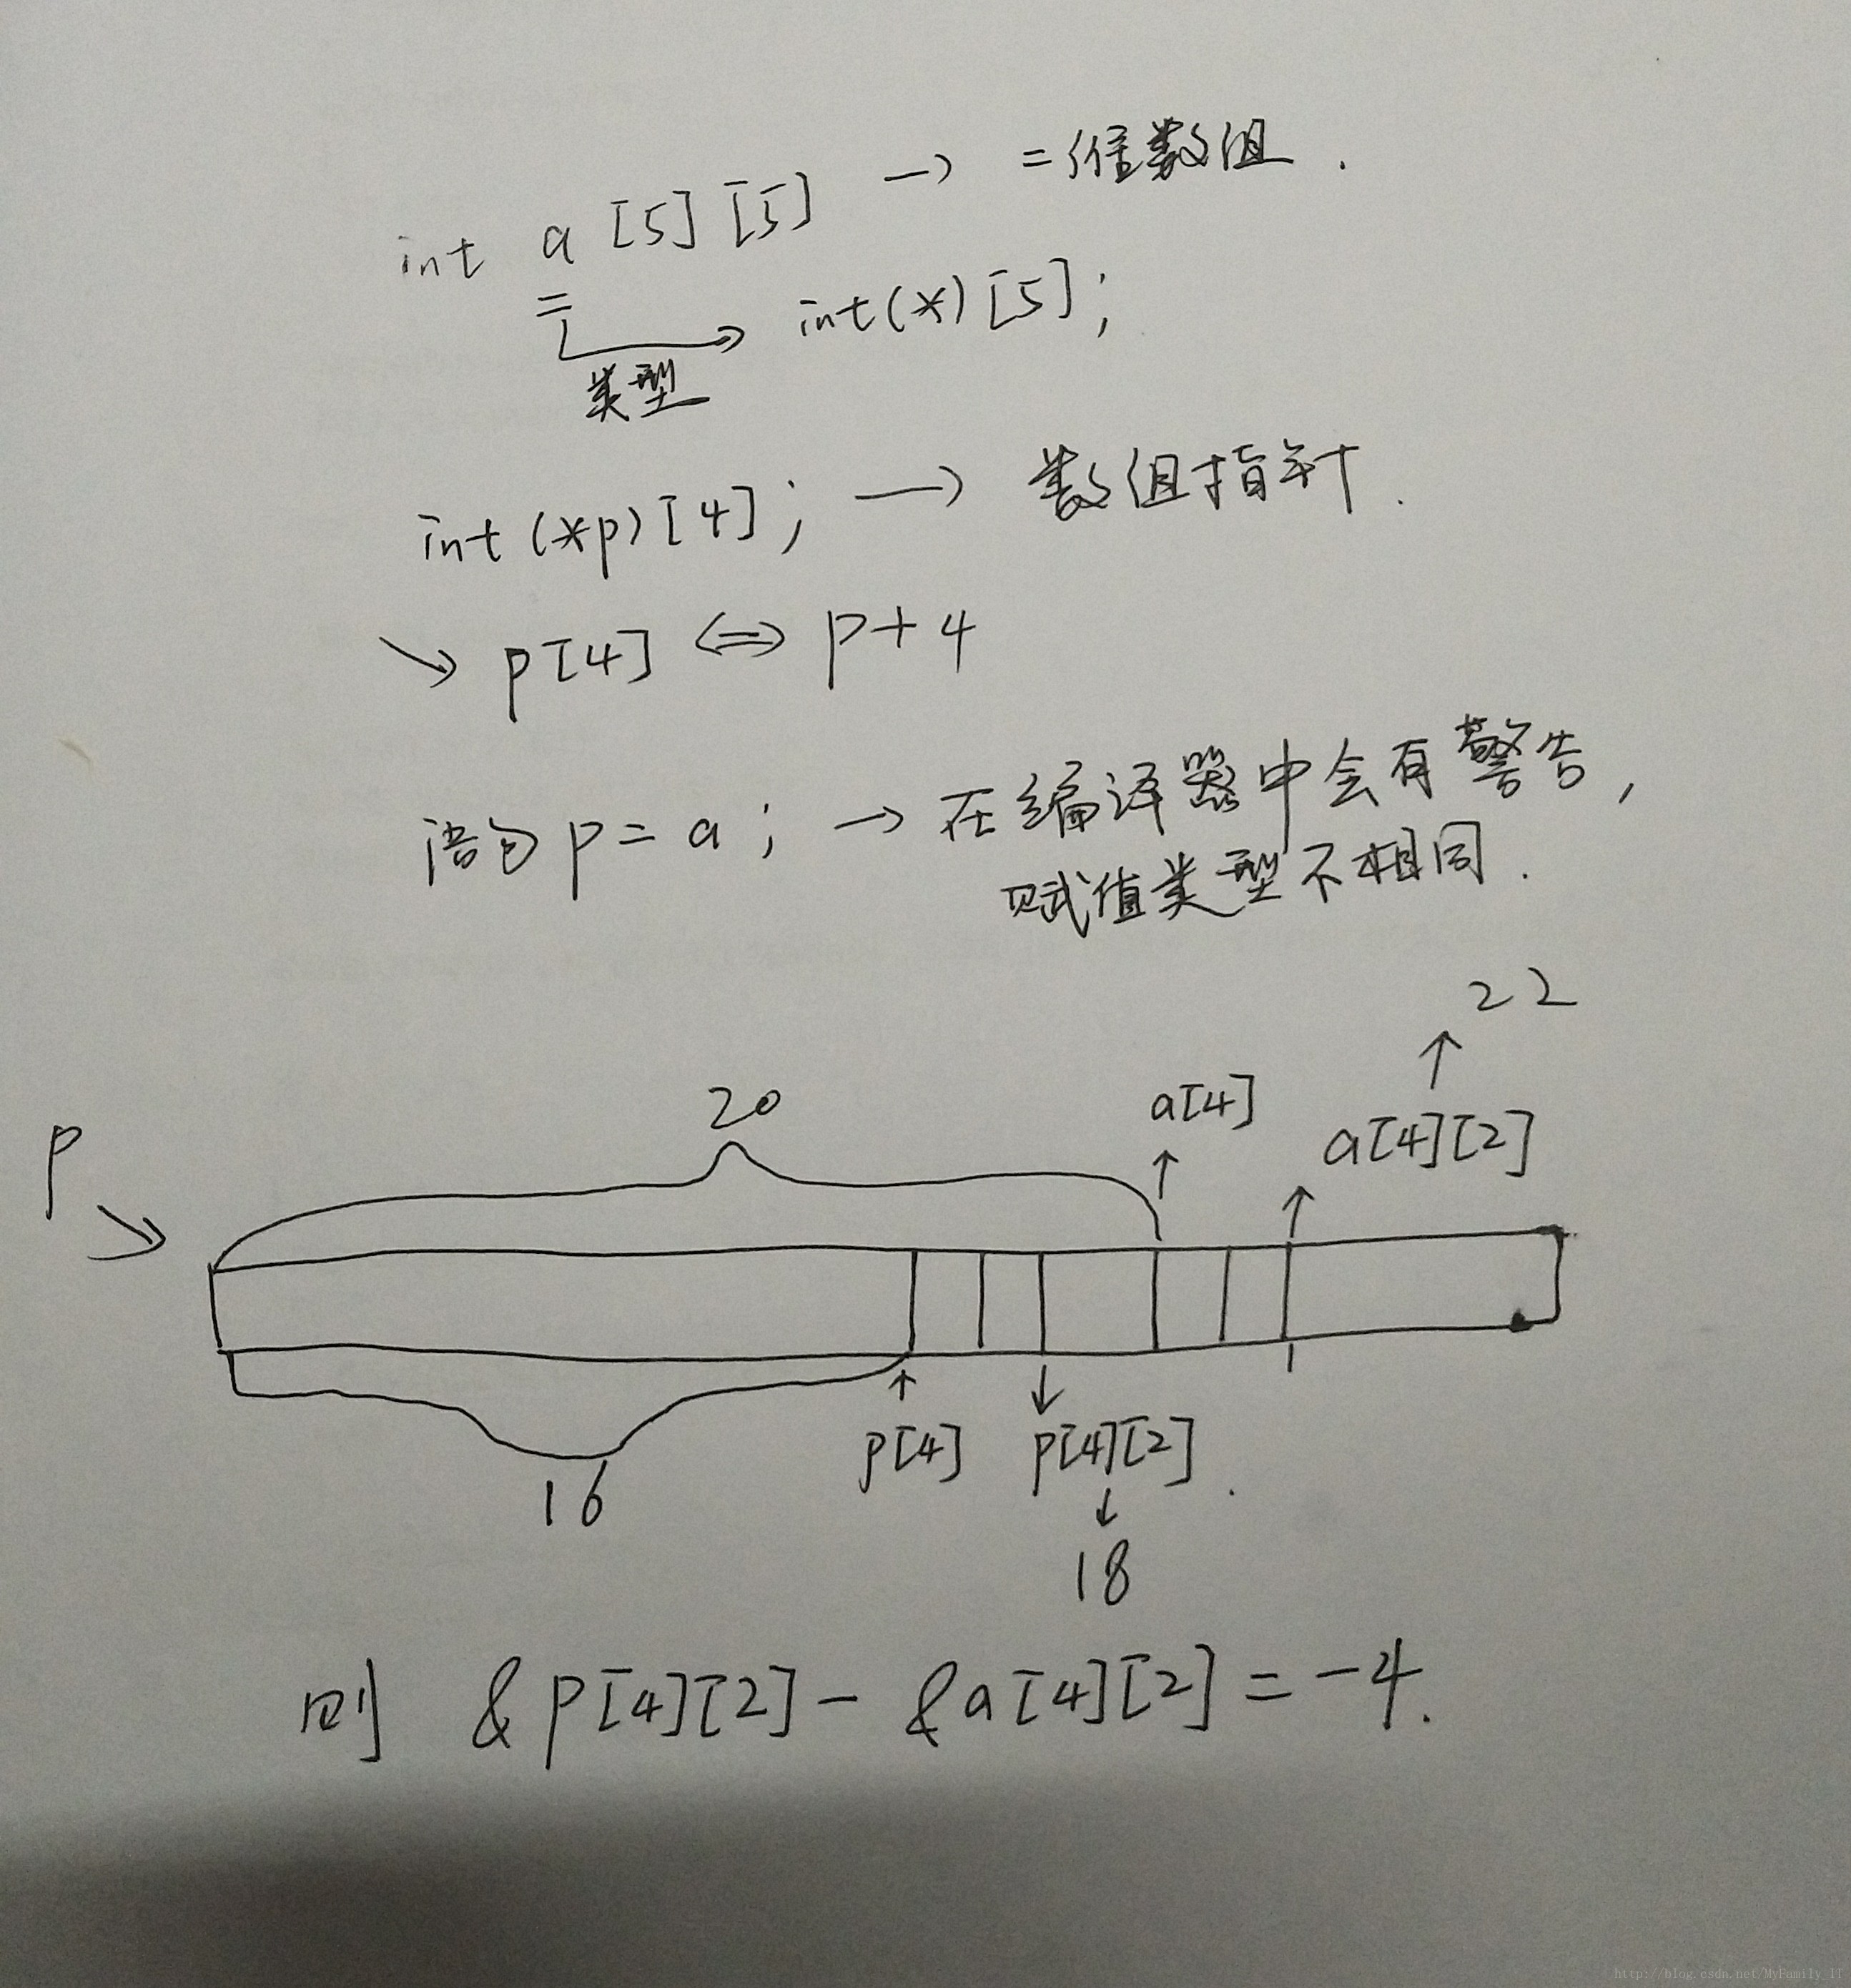 int a [5] [5] → 二维数组.
int(*)[5];
类型
int (*p)[4]; → 数组指针.
↘ p[4] ⇔ p+4
语句 p = a; → 在编译器中会有警告,
赋值类型不相同.
22
20
a[4]
a[4][2]
p
p[4]
p[4][2].
16
18
则 &p[4][2] - &a[4][2] = -4.
http://blog.csdn.net/MyFamily_IT